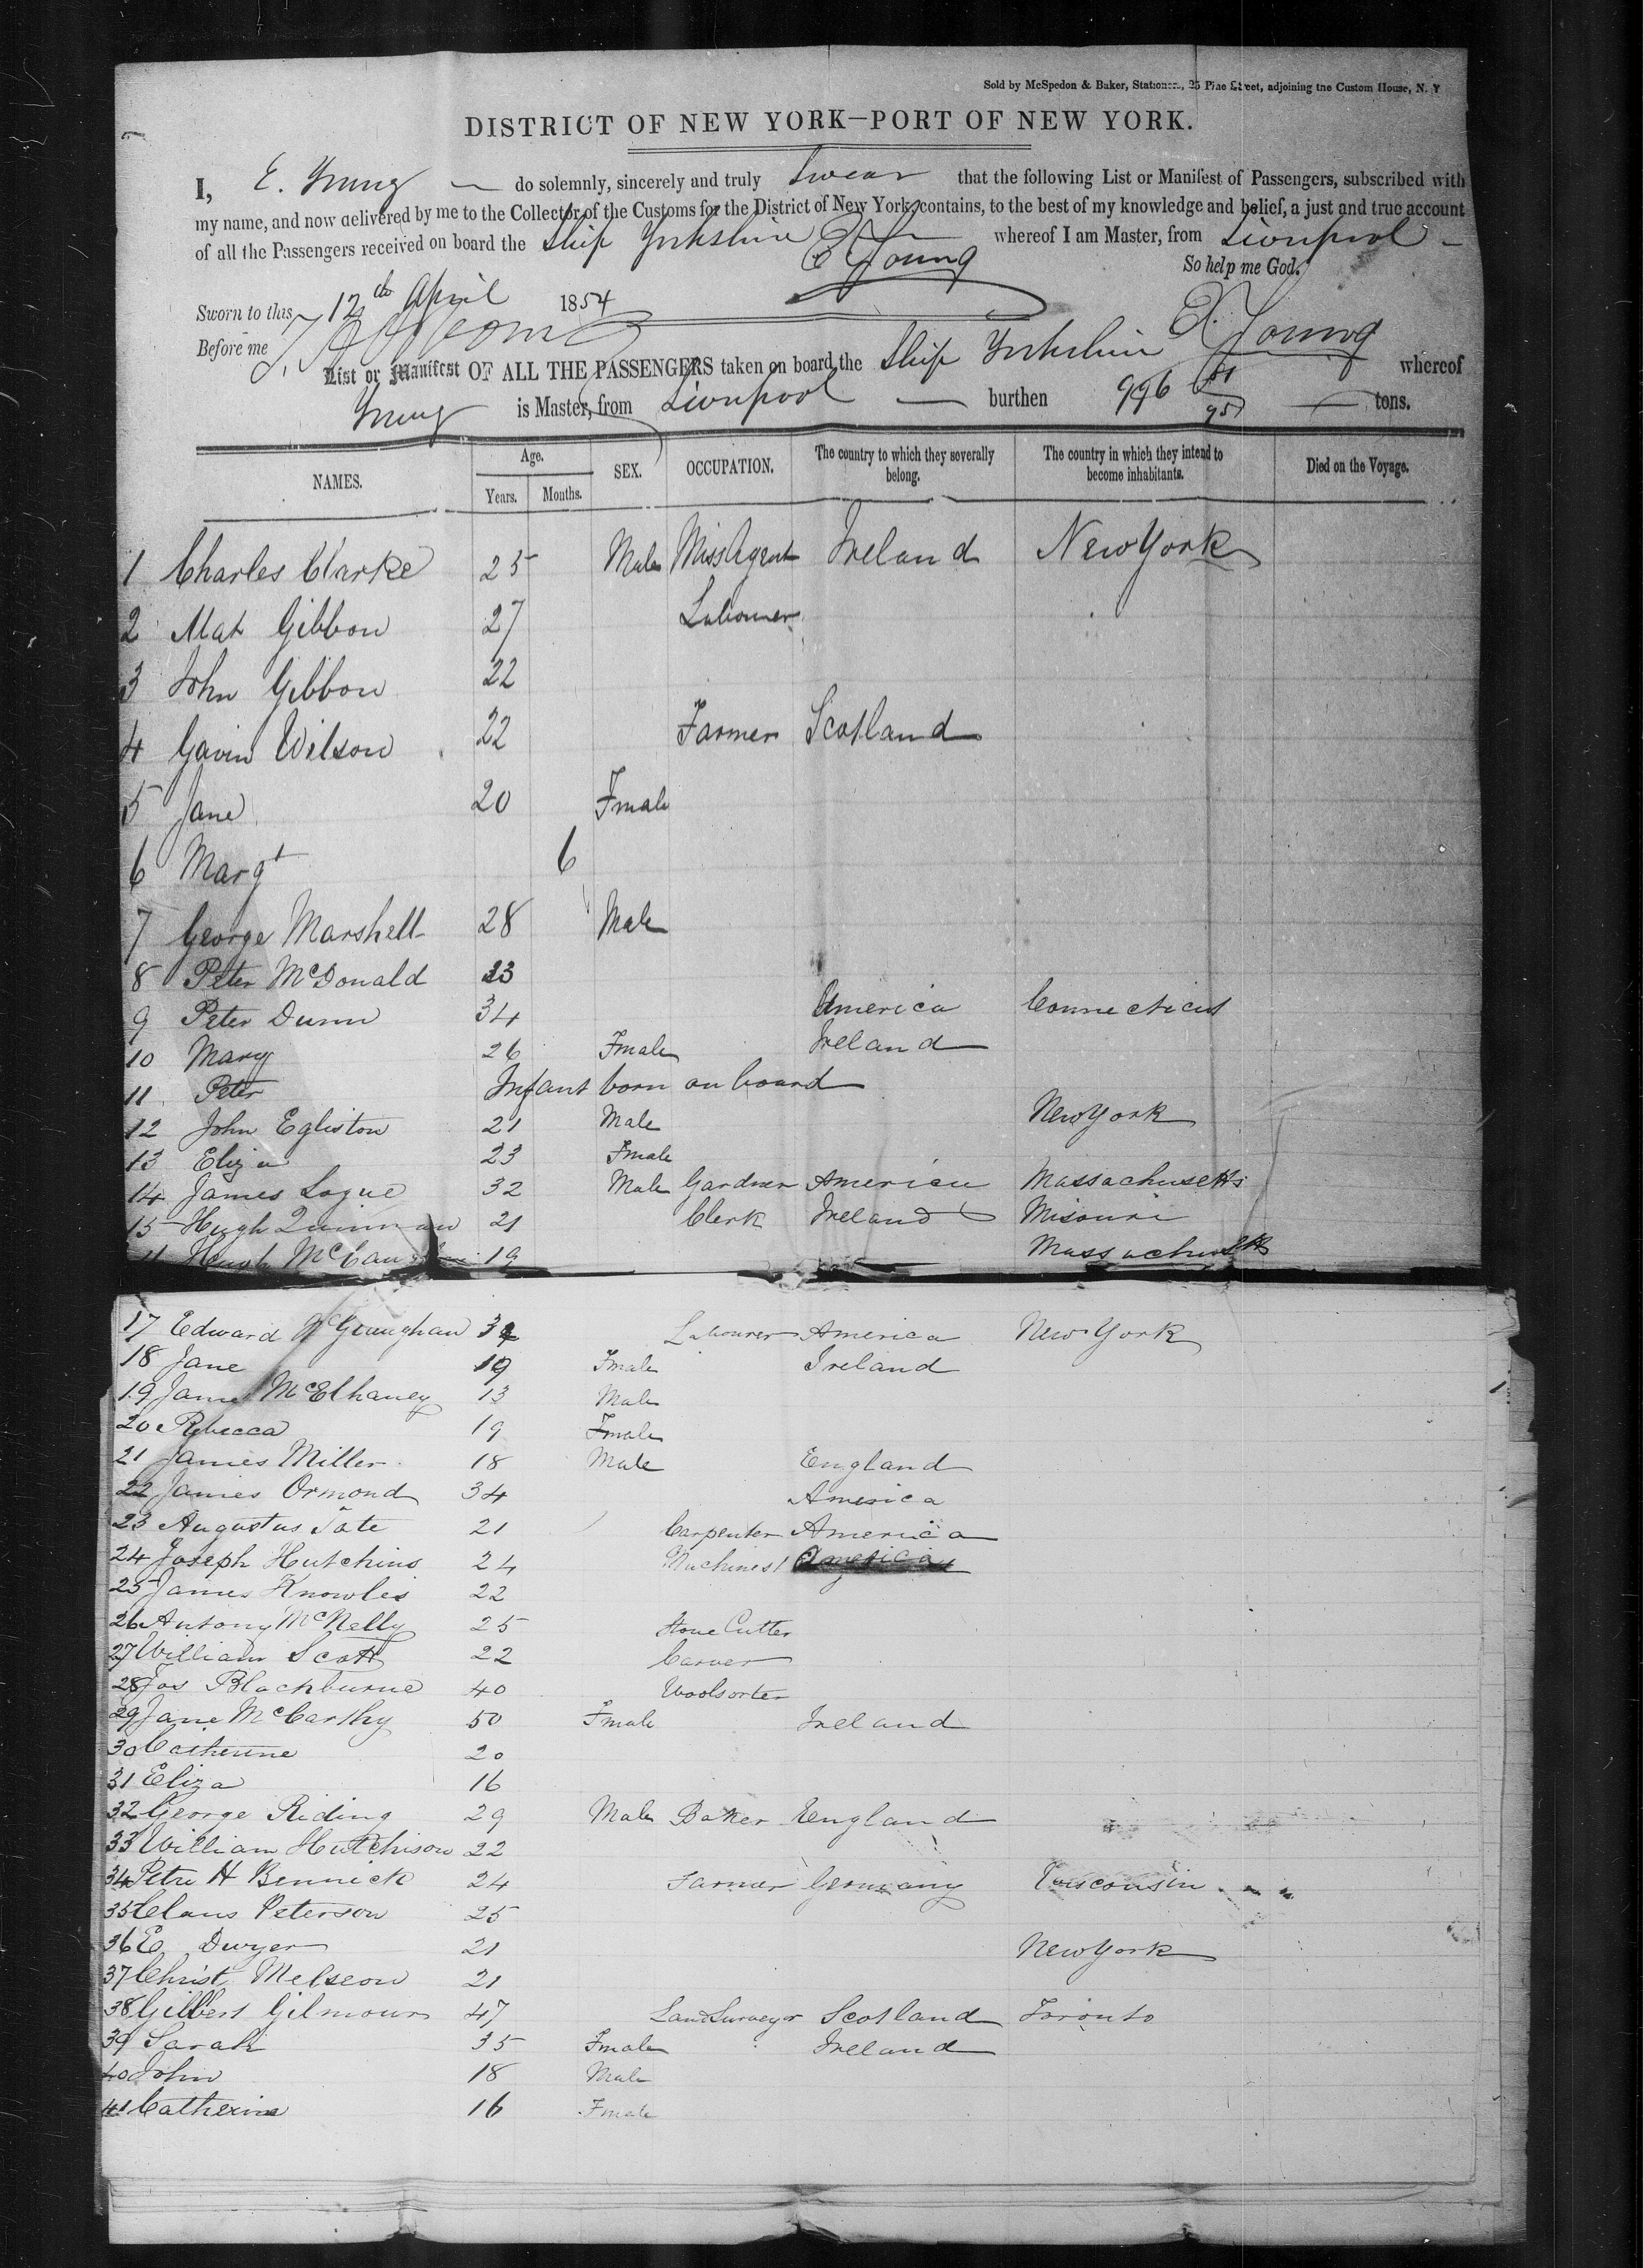 Sold by McSpedon & Baker, Stationers, 25 Pine Street, adjoining the Custom House, N. Y
DISTRICT OF NEW YORK—PORT OF NEW YORK.
I, E. Young do solemnly, sincerely and truly Swear that the following List or Manifest of Passengers, subscribed with
my name, and now delivered by me to the Collector of the Customs for the District of New York, contains, to the best of my knowledge and belief, a just and true account
of all the Passengers received on board the Ship Yorkshire whereof I am Master, from Liverpool
E Young
So help me God.
Sworn to this 12th April 1854
Before me
E. Young
List or Manifest OF ALL THE PASSENGERS taken on board the Ship Yorkshire whereof
Young is Master, from Liverpool burthen 996 tons.
NAMES. Age. Years. Months. SEX. OCCUPATION. The country to which they severally belong. The country in which they intend to become inhabitants. Died on the Voyage.
1 Charles Clarke 25 Male Miss Agent Ireland New York
2 Mat Gibbon 27 Labourer
3 John Gibbon 22
4 Gavin Wilson 22 Farmer Scotland
5 Jane 20 Fmale
6 Margt 6
7 George Marshell 28 Male
8 Peter McDonald 23
9 Peter Dunn 34 America Connecticut
10 Mary 26 Fmale Ireland
11 Peter Infant born on board
12 John Egliston 21 Male New York
13 Eliza 23 Fmale
14 James Logue 32 Male Gardner America Massachusetts
15 Hugh Quinnan 21 Clerk Ireland Misouri
Hugh 19 Massachusetts
17 Edward 34 Labourer America New York
18 Jane 19 Fmale Ireland
19 James McElhaney 13 Male
20 Rebecca 19 Fmale
21 James Miller 18 Male England
22 James Ormond 34 America
23 Augustus Tate 21 Carpenter America
24 Joseph Hutchins 24 Machinest
25 James Knowles 22
26 Antony McNelly 25 Stone Cutter
27 William Scott 22 Carver
28 Jos Blackburne 40 Woolsorter
29 Jane McCarthy 50 Fmale Ireland
30 Catherine 20
31 Eliza 16
32 George Riding 29 Male Baker England
33 William Hutchison 22
34 Petre H Bennick 24 Farmer Germany Wisconsin " "
35 Claus Peterson 25
36 E Dwyer 21 New York
37 Christ Melseon 21
38 Gilbert Gilmour 47 Land Surveyor Scotland Toronto
39 Sarah 35 Fmale Ireland
40 John 18 Male
41 Catherine 16 Fmale